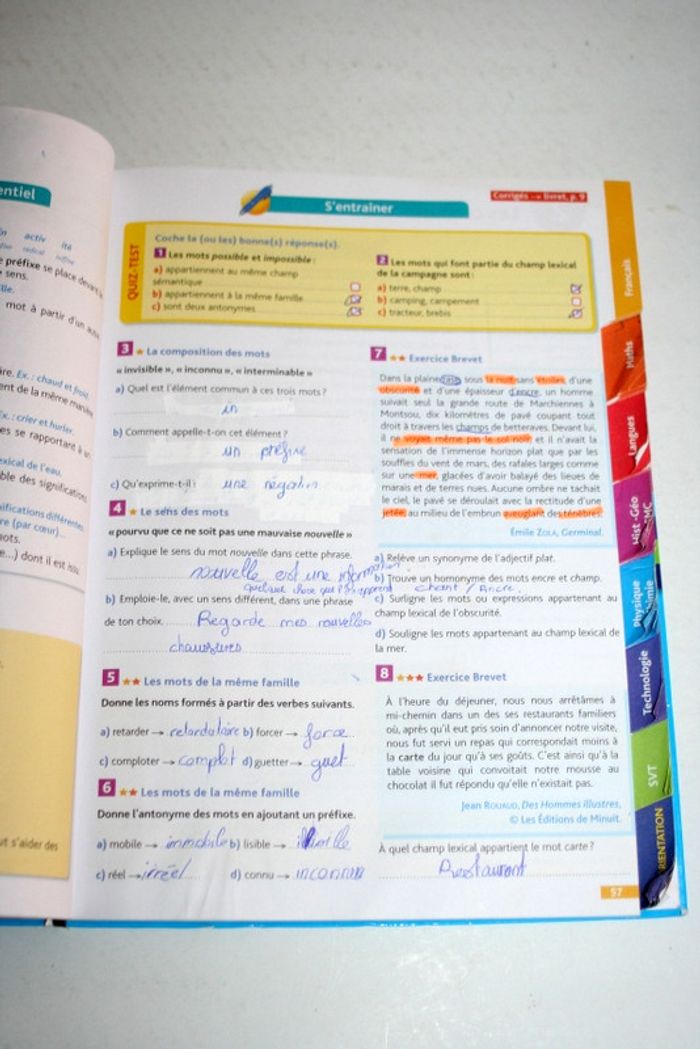 entiel
activ
ité
préfixe se place devant
sens.
mot à partir d'un
Ex. : chaud et froid.
ent de la même manière
Ex. : crier et hurler.
es se rapportant à un
exical de l'eau.
ble des significations
nifications différentes
re (par cœur)...
mots.
e...) dont il est issu
ut s'aider des
S'entraîner
Corrigés → livret, p. 9
QUIZ-TEST
Coche la (ou les) bonne(s) réponse(s).
1 Les mots possible et impossible :
a) appartiennent au même champ
sémantique
b) appartiennent à la même famille
c) sont deux antonymes
2 Les mots qui font partie du champ lexical
de la campagne sont :
a) terre, champ
b) camping, campement
c) tracteur, brebis
3 ★ La composition des mots
« invisible », « inconnu », « interminable »
a) Quel est l'élément commun à ces trois mots ?
in
b) Comment appelle-t-on cet élément ?
un préfixe
c) Qu'exprime-t-il : une négation
4 ★ Le sens des mots
« pourvu que ce ne soit pas une mauvaise nouvelle »
a) Explique le sens du mot nouvelle dans cette phrase.
nouvelle est une information
quelque chose que
b) Emploie-le, avec un sens différent, dans une phrase
de ton choix. Regarde mes nouvelles
chaussures
5 ★★ Les mots de la même famille
Donne les noms formés à partir des verbes suivants.
a) retarder → retardataire b) forcer → force
c) comploter → complot d) guetter → guet
6 ★★ Les mots de la même famille
Donne l'antonyme des mots en ajoutant un préfixe.
a) mobile → immobile b) lisible →
c) réel → irréel d) connu → inconnu
7 ★★ Exercice Brevet
Dans la plaine rase, sous la nuit sans étoiles, d'une
obscurité et d'une épaisseur d'encre, un homme
suivait seul la grande route de Marchiennes à
Montsou, dix kilomètres de pavé coupant tout
droit à travers les champs de betteraves. Devant lui,
il ne voyait même pas le sol noir, et il n'avait la
sensation de l'immense horizon plat que par les
souffles du vent de mars, des rafales larges comme
sur une mer, glacées d'avoir balayé des lieues de
marais et de terres nues. Aucune ombre ne tachait
le ciel, le pavé se déroulait avec la rectitude d'une
jetée, au milieu de l'embrun aveuglant des ténèbres.
Émile ZOLA, Germinal.
a) Relève un synonyme de l'adjectif plat.
b) Trouve un homonyme des mots encre et champ.
chant / Ancre.
c) Surligne les mots ou expressions appartenant au
champ lexical de l'obscurité.
d) Souligne les mots appartenant au champ lexical de
la mer.
8 ★★★ Exercice Brevet
À l'heure du déjeuner, nous nous arrêtâmes à
mi-chemin dans un des ses restaurants familiers
où, après qu'il eut pris soin d'annoncer notre visite,
nous fut servi un repas qui correspondait moins à
la carte du jour qu'à ses goûts. C'est ainsi qu'à la
table voisine qui convoitait notre mousse au
chocolat il fut répondu qu'elle n'existait pas.
Jean ROUAUD, Des Hommes illustres,
© Les Éditions de Minuit.
À quel champ lexical appartient le mot carte ?
Restaurant
57
Français
Maths
Langues
Hist-Géo
EMC
Physique
Chimie
Technologie
SVT
ORIENTATION